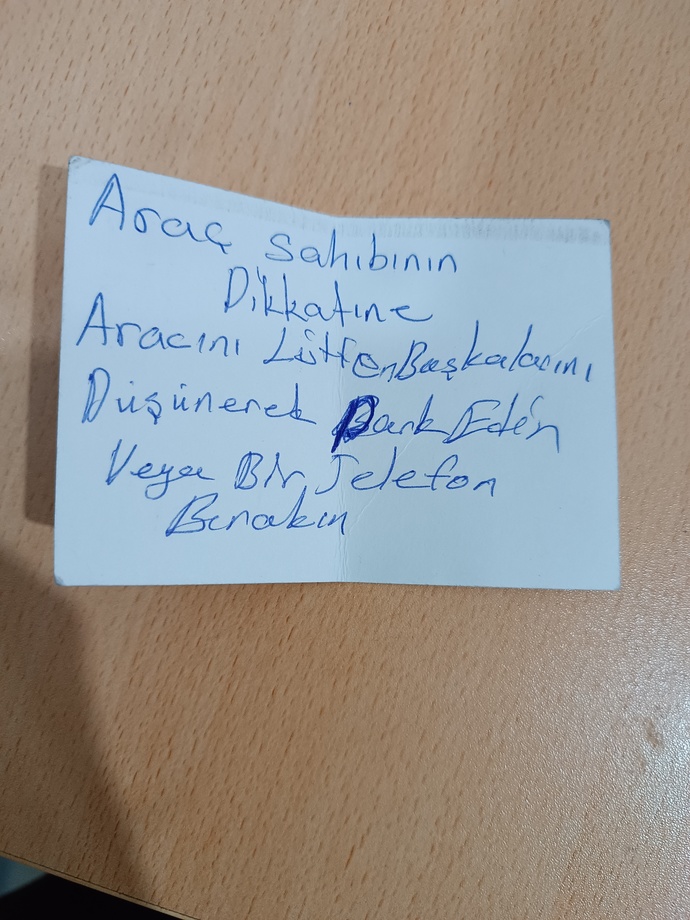 Araç sahıbının
Dikkatıne
Aracını LütfenBaşkalarını
Düşünerek Park Edin
Veya Bir Telefon
Bırakın